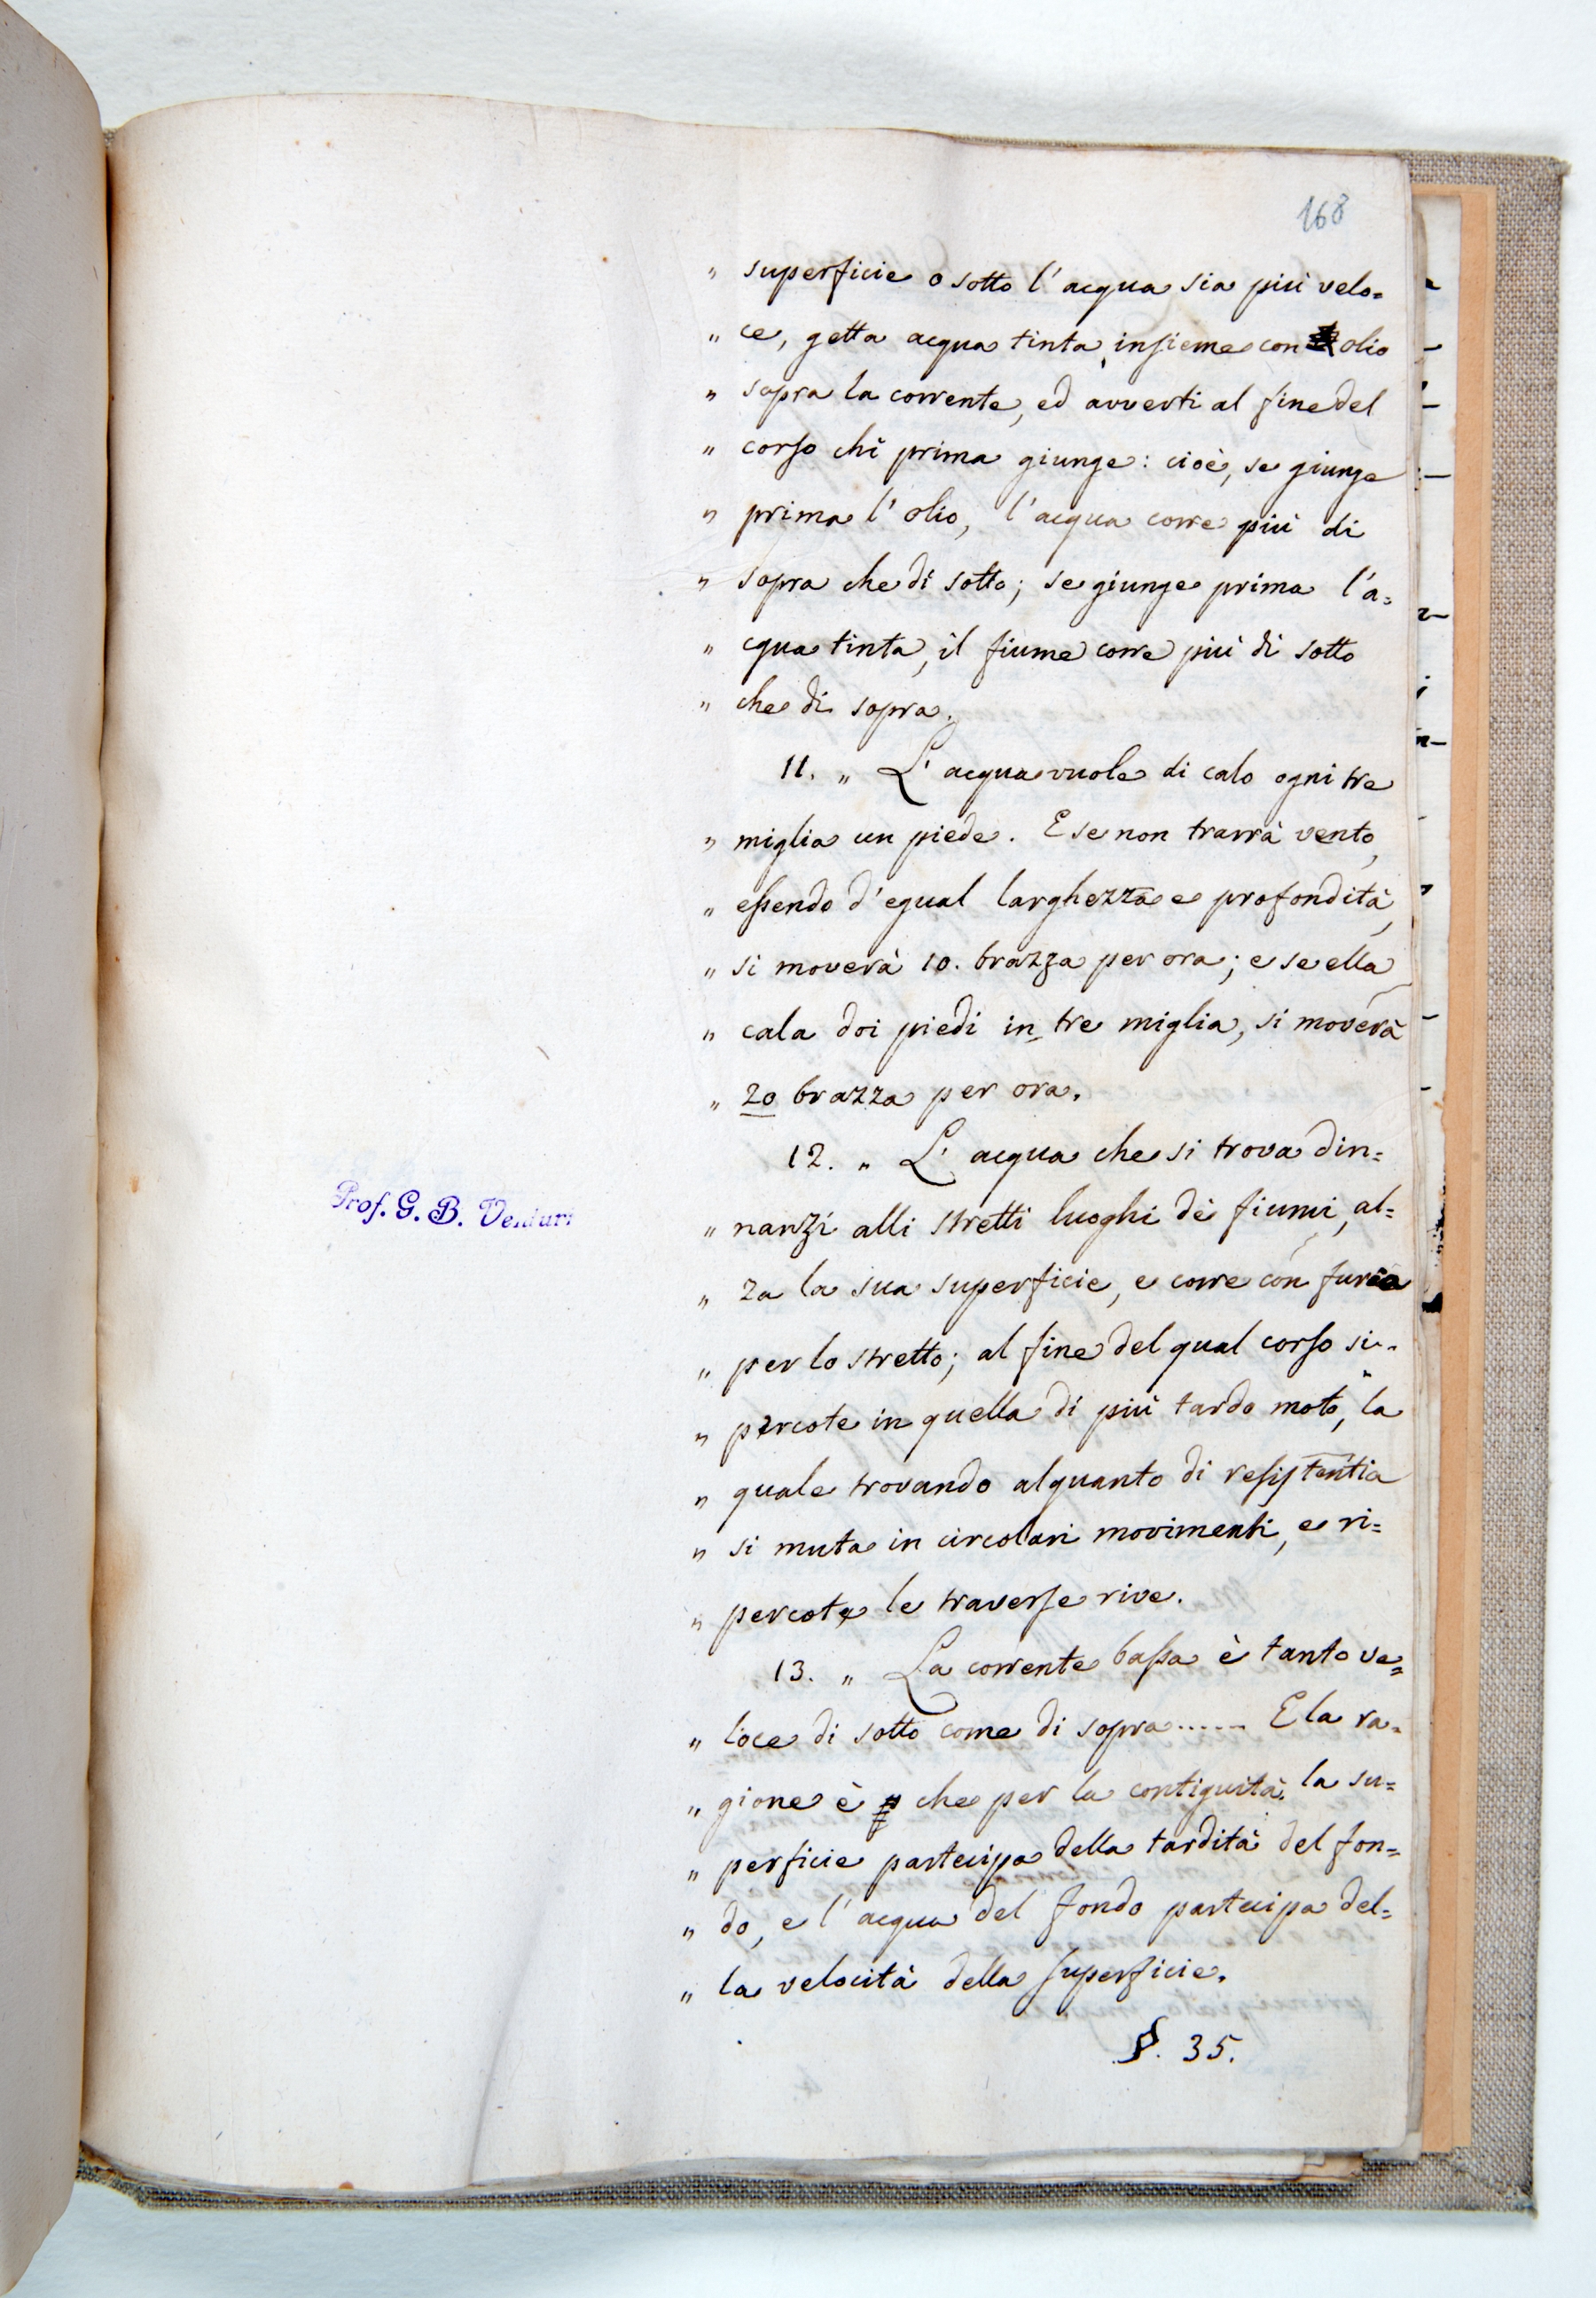 168
„ superficie o sotto l'acqua sia più velo=
„ ce, getta acqua tinta insieme con olio
„ sopra la corrente, ed avverti al fine del
„ corso chi prima giunge: cioè, se giunge
„ prima l'olio, l'acqua corre più di
„ sopra che di sotto; se giunge prima l'a=
„ cqua tinta, il fiume corre più di sotto
„ che di sopra.
11. „ L'acqua vuole di calo ogni tre
„ miglia un piede. E se non trarrà vento,
„ essendo d'egual larghezza e profondità,
„ si moverà 10. brazza per ora; e se ella
„ cala doi piedi in tre miglia, si moverà
„ 20 brazza per ora.
12. „ L'acqua che si trova din=
„ nanzi alli stretti luoghi dè fiumi, al=
„ za la sua superficie, e corre con furia
„ per lo stretto; al fine del qual corso si
„ percote in quella di più tardo moto, la
„ quale trovando alquanto di resistentia
„ si muta in circolari movimenti, e ri=
„ percote le traverse rive.
13. „ La corrente bassa è tanto ve=
„ loce di sotto come di sopra...... E la ra=
„ gione è che per la contiguità, la su=
„ perficie partecipa della tardità del fon=
„ do, e l'acqua del fondo partecipa del=
„ la velocità della superficie.
§. 35.
Prof. G. B. Venturi